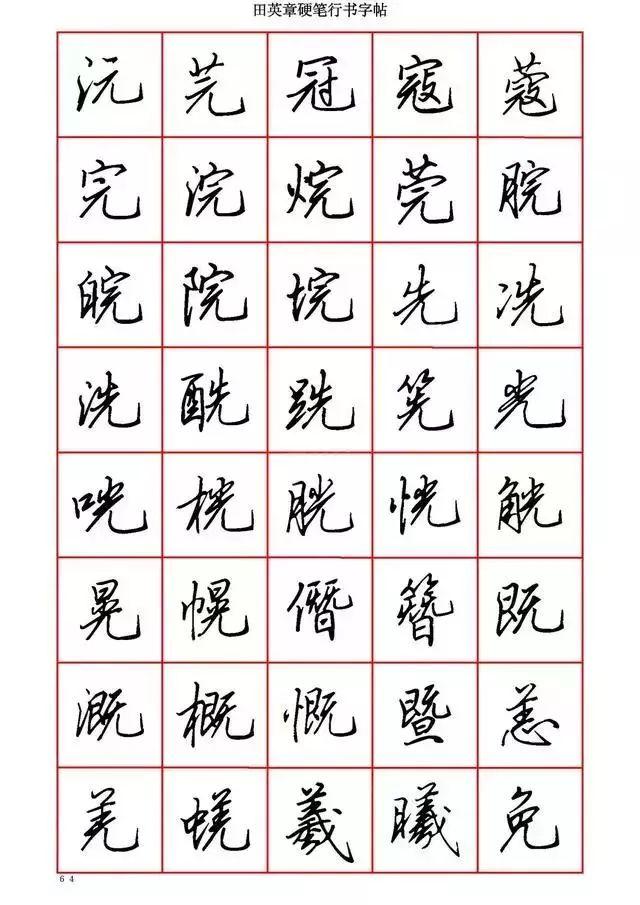 田英章硬笔行书字帖
沅芫冠寇蔻
完浣烷莞脘
皖院垸先冼
洗酰跣筅光
咣桄胱恍觥
晃幌僭簪既
溉概慨暨恙
羌蜣羲曦免
64